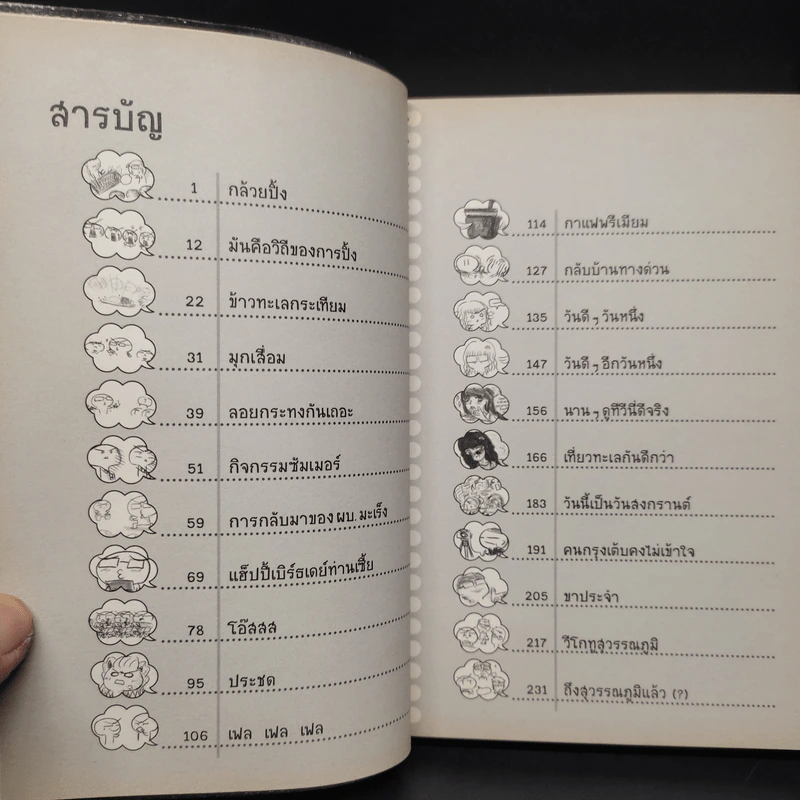 สารบัญ
1 กล้วยปิ้ง
12 มันคือวิถีของการปิ้ง
22 ข้าวทะเลกระเทียม
31 มุกเสื่อม
39 ลอยกระทงกันเถอะ
51 กิจกรรมซัมเมอร์
59 การกลับมาของ ผบ. มะเร็ง
69 แฮ็ปปี้เบิร์ธเดย์ท่านเซี้ย
78 โอ๊สสส
95 ประชด
106 เฟล เฟล เฟล
114 กาแฟพรีเมียม
127 กลับบ้านทางด่วน
135 วันดี ๆ วันหนึ่ง
147 วันดี ๆ อีกวันหนึ่ง
156 นาน ๆ ดูทีวีนี่ดีจริง
166 เที่ยวทะเลกันดีกว่า
183 วันนี้เป็นวันสงกรานต์
191 คนกรุงเต็บคงไม่เข้าใจ
205 ขาประจำ
217 วีโกทูสุวรรณภูมิ
231 ถึงสุวรรณภูมิแล้ว (?)